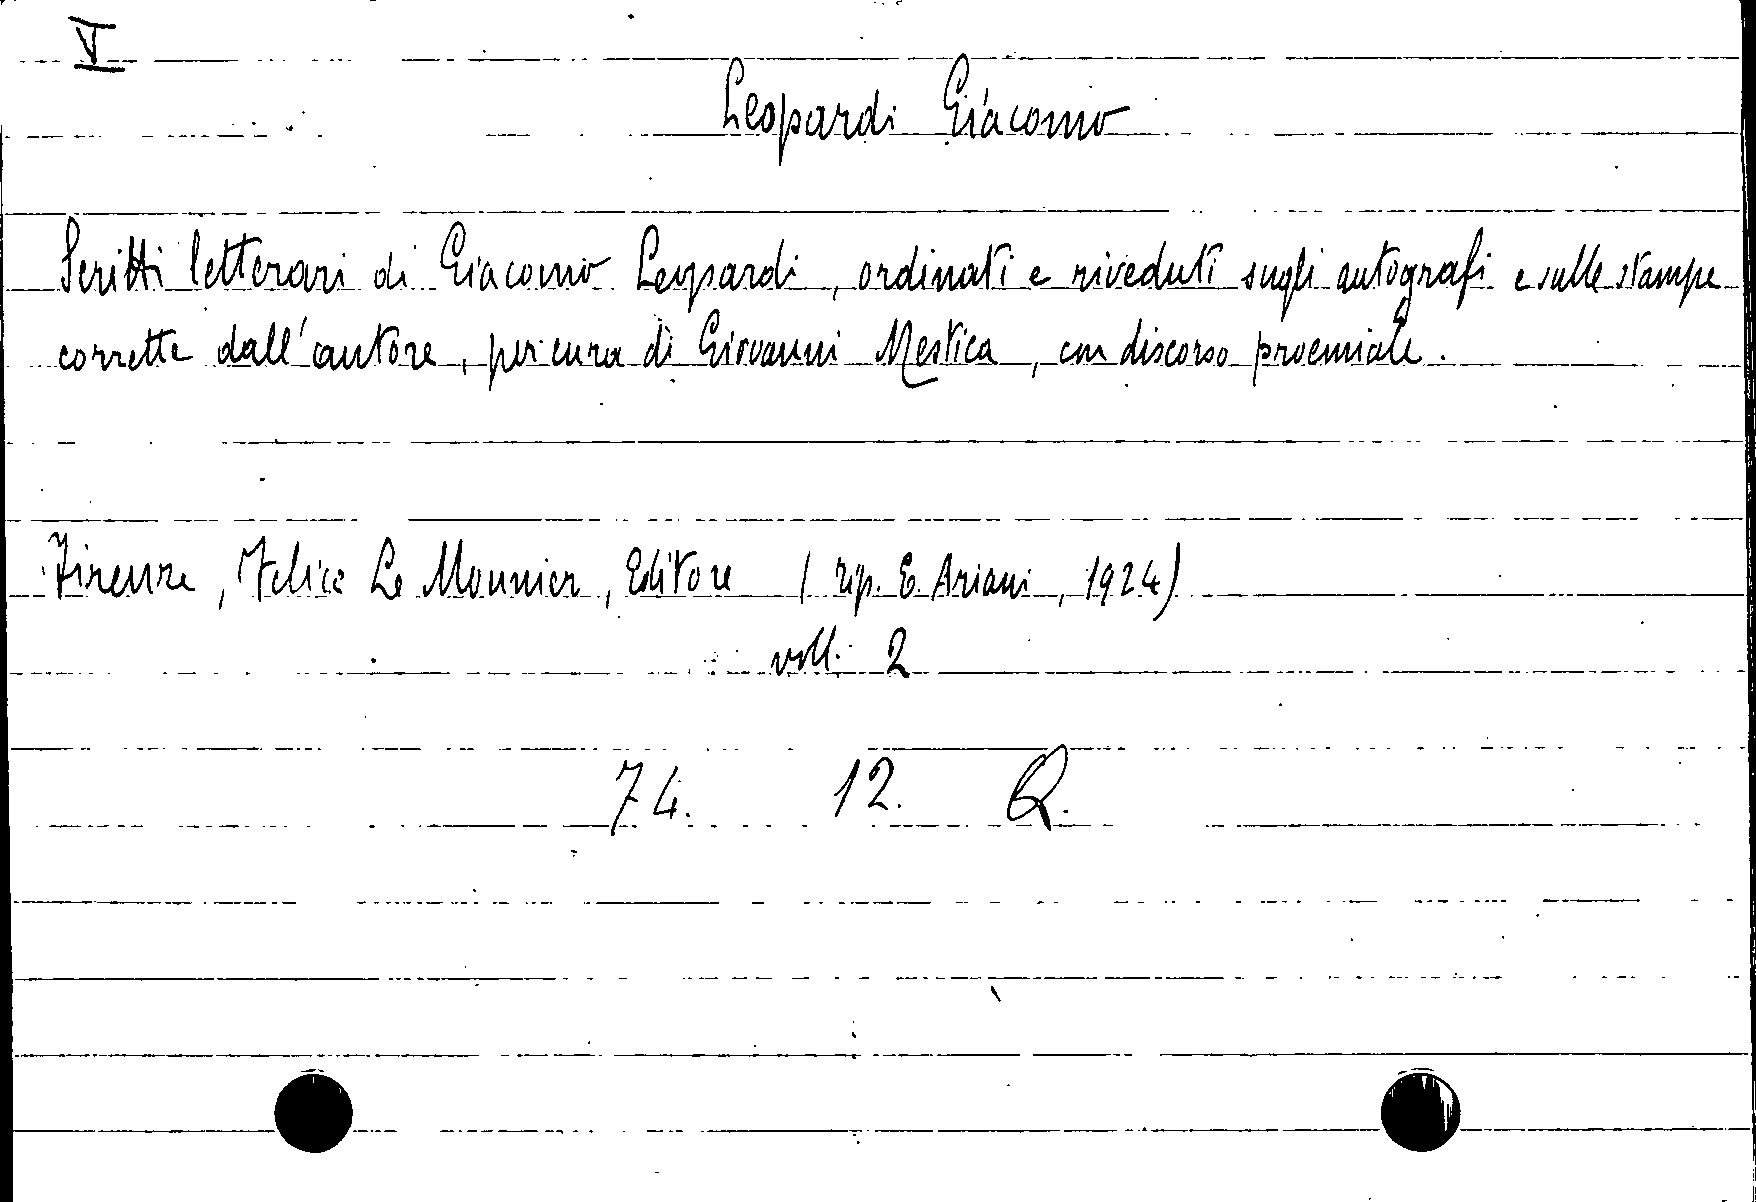 V
Leopardi Giacomo
Scritti letterari di Giacomo Leopardi, ordinati e riveduti sugli autografi e sulle stampe
corrette dall'autore, per cura di Giovanni Mestica, con discorso proemiale.
Firenze, Felice Le Monnier, Editore (tip. E. Ariani, 1924)
voll. 2
74. 12. Q.